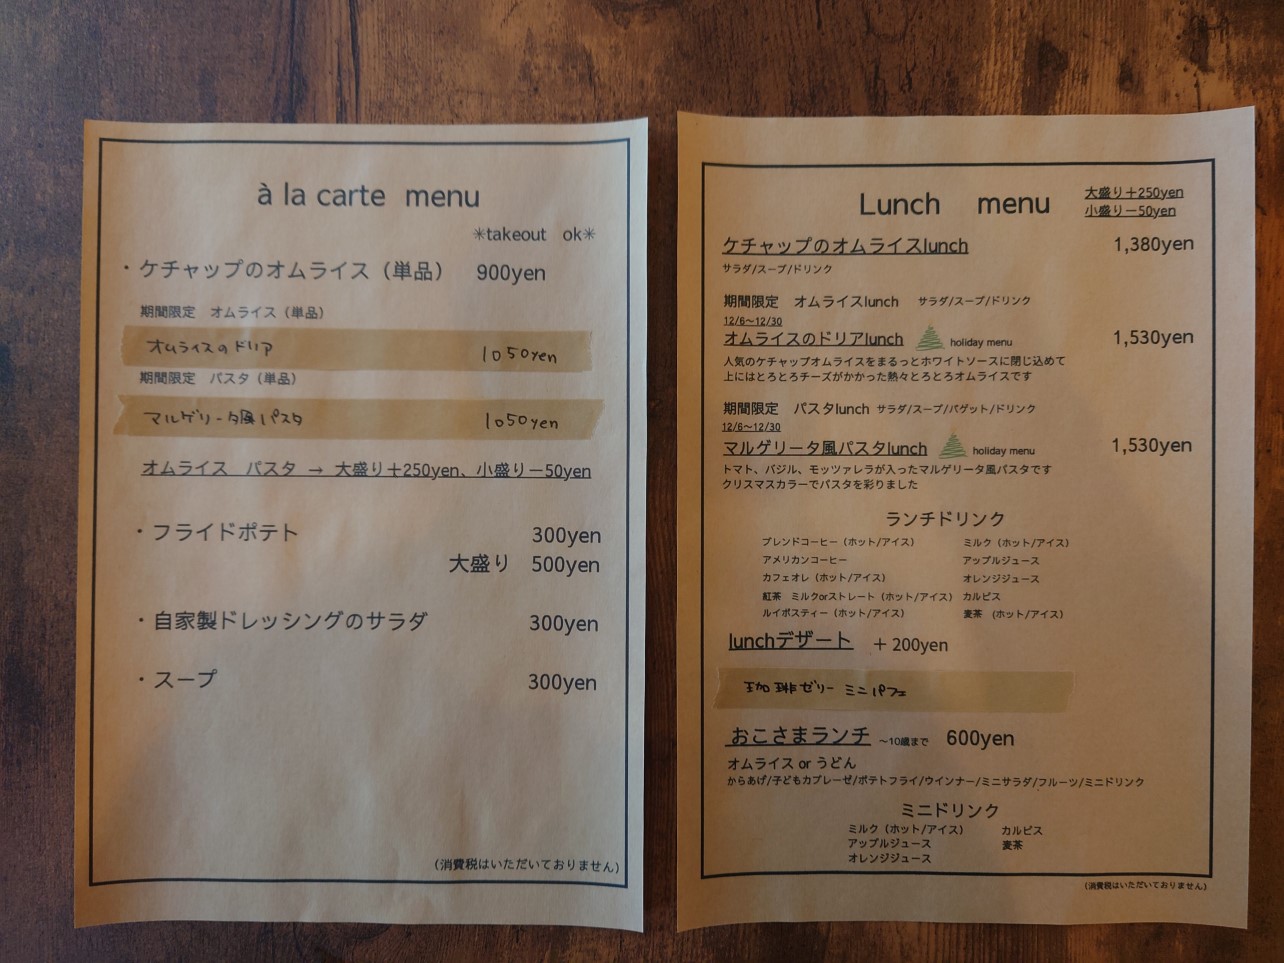 à la carte menu
✳takeout ok✳
・ケチャップのオムライス（単品） 900yen
期間限定 オムライス（単品）
オムライスのドリア 1050yen
期間限定 パスタ（単品）
マルゲリータ風パスタ 1050yen
オムライス パスタ → 大盛り＋250yen、小盛り－50yen
・フライドポテト 300yen
大盛り 500yen
・自家製ドレッシングのサラダ 300yen
・スープ 300yen
(消費税はいただいておりません)
Lunch menu
大盛り＋250yen
小盛り－50yen
ケチャップのオムライスlunch 1,380yen
サラダ/スープ/ドリンク
期間限定 オムライスlunch サラダ/スープ/ドリンク
12/6～12/30
オムライスのドリアlunch holiday menu 1,530yen
人気のケチャップオムライスをまるっとホワイトソースに閉じ込めて
上にはとろとろチーズがかかった熱々とろとろオムライスです
期間限定 パスタlunch サラダ/スープ/バゲット/ドリンク
12/6～12/30
マルゲリータ風パスタlunch holiday menu 1,530yen
トマト、バジル、モッツァレラが入ったマルゲリータ風パスタです
クリスマスカラーでパスタを彩りました
ランチドリンク
ブレンドコーヒー（ホット/アイス） ミルク（ホット/アイス）
アメリカンコーヒー アップルジュース
カフェオレ（ホット/アイス） オレンジジュース
紅茶 ミルクorストレート（ホット/アイス） カルピス
ルイボスティー（ホット/アイス） 麦茶 （ホット/アイス）
lunchデザート ＋200yen
珈琲ゼリー ミニパフェ
おこさまランチ ～10歳まで 600yen
オムライス or うどん
からあげ/子どもカプレーゼ/ポテトフライ/ウインナー/ミニサラダ/フルーツ/ミニドリンク
ミニドリンク
ミルク（ホット/アイス） カルピス
アップルジュース 麦茶
オレンジジュース
(消費税はいただいておりません)